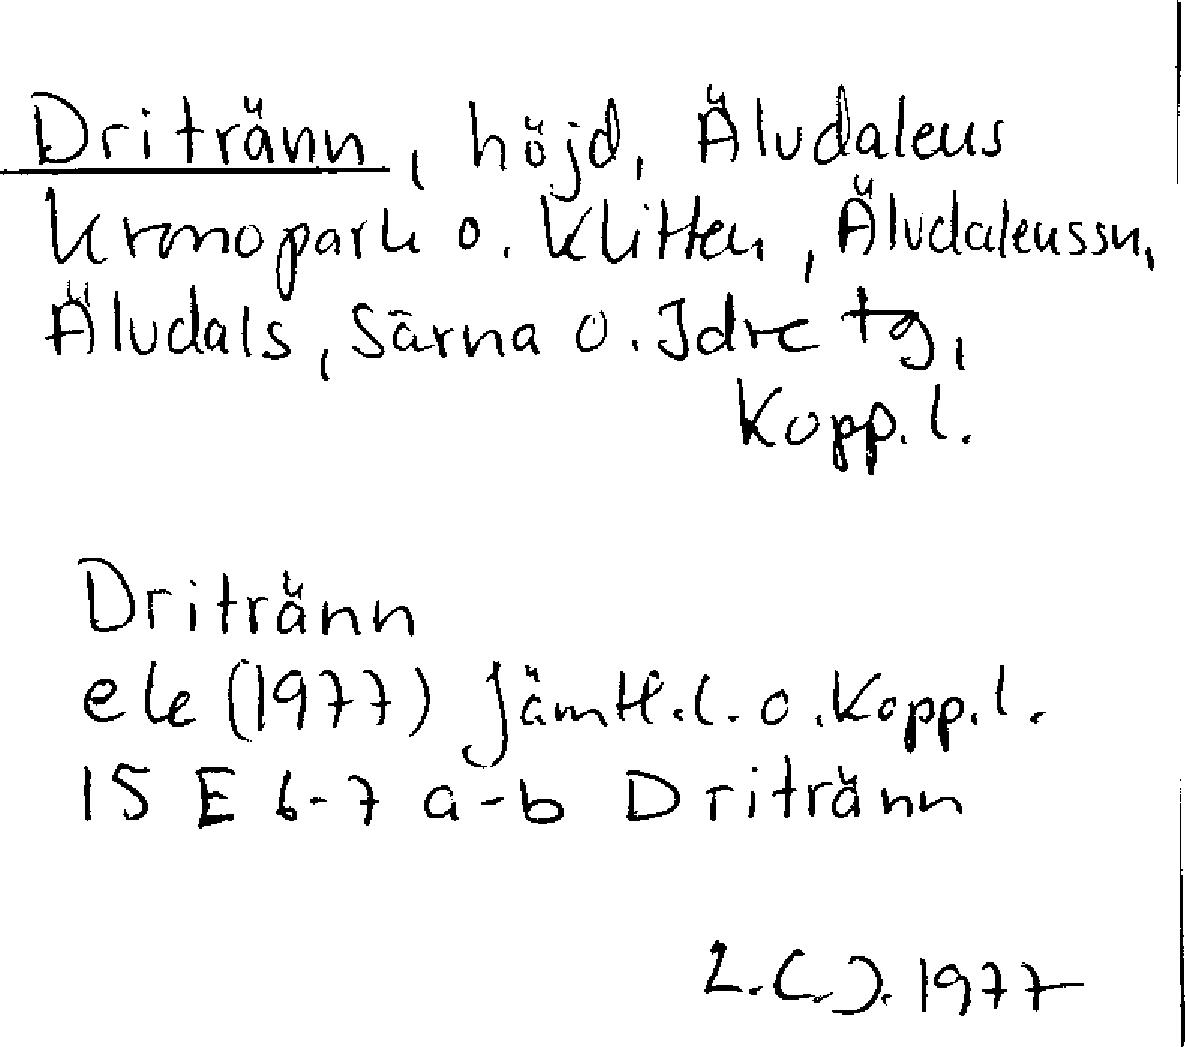 Dritränn, höjd, Älvdalens
kronopark o. Klitten, Älvdalenssn,
Älvdals, Särna o. Idre tg,
Kopp.l.
Dritränn
ek (1977) Jämtl.l. o. Kopp.l.
15 E 6-7 a-b Dritränn
L.C.J. 1977